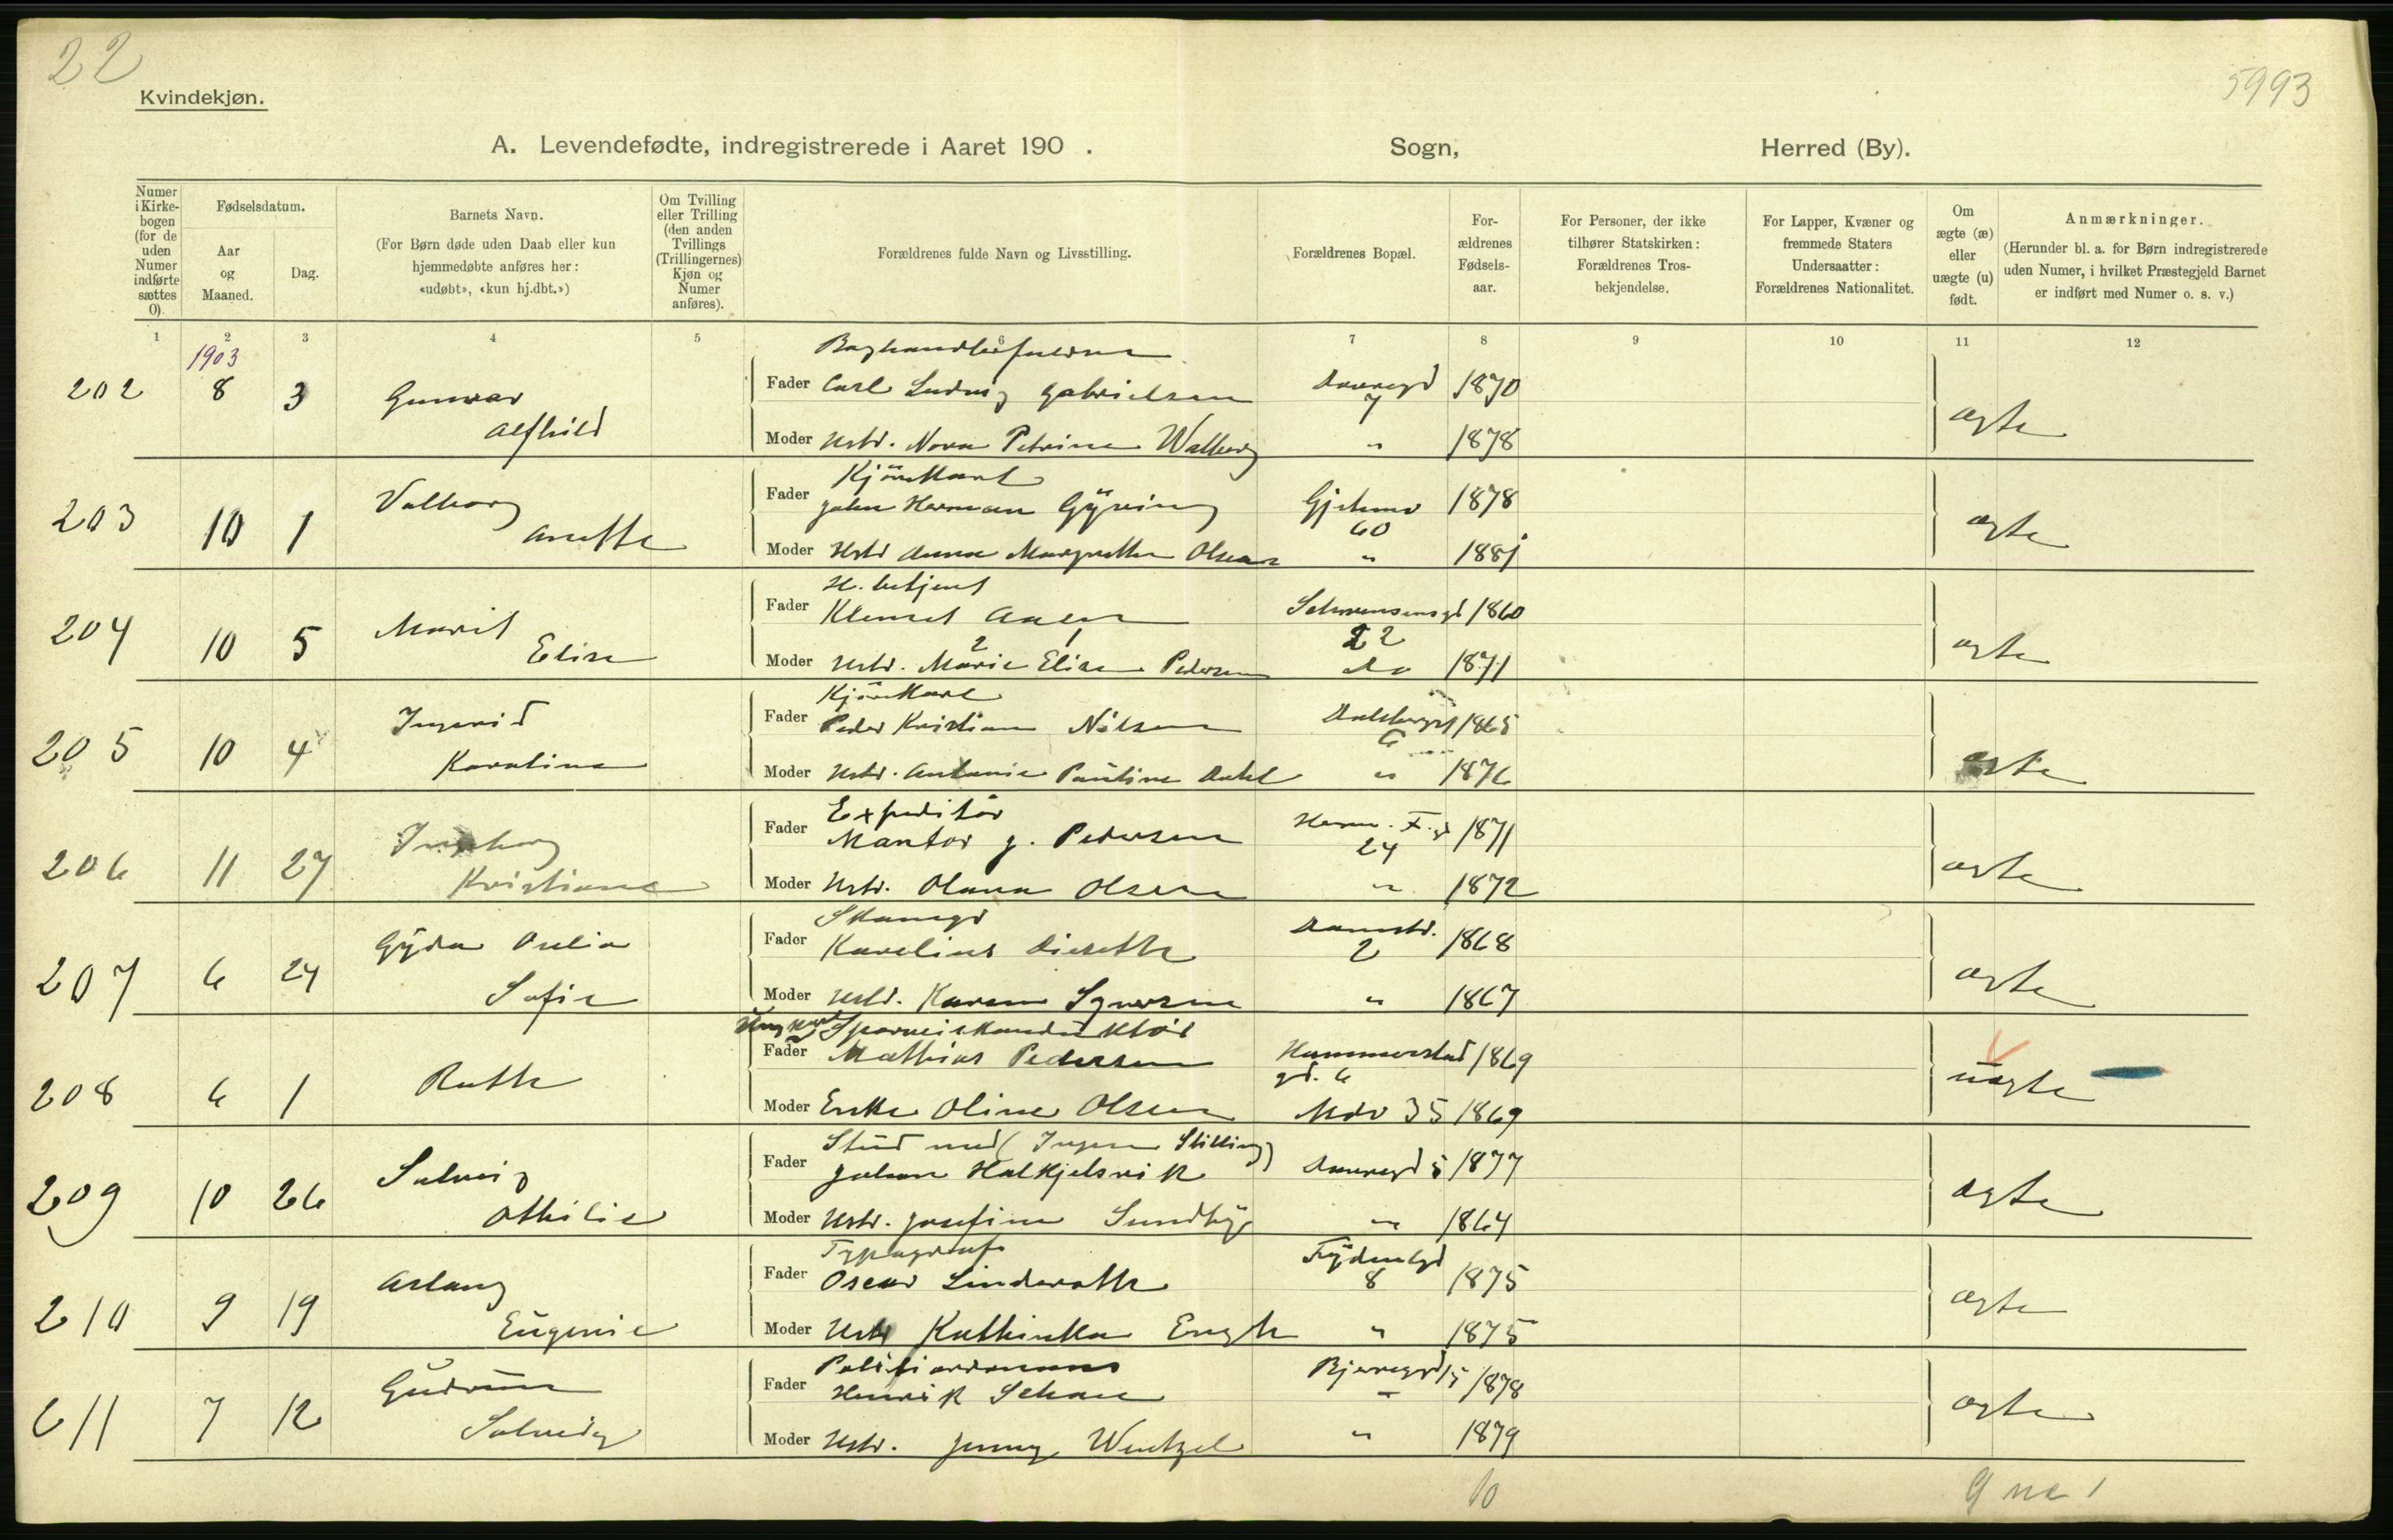 22
5993
Kvindekjøn.
A. Levendefødte, indregistrerede i Aaret 190 . Sogn, Herred (By).
Numer i Kirke-bogen (for de uden Numer indførte sættes 0).
Fødselsdatum.
Aar og Maaned.
Dag.
Barnets Navn.
(For Børn døde uden Daab eller kun
hjemmedøbte anføres her:
«udøbt», «kun hj.dbt.»)
Om Tvilling
eller Trilling
(den anden
Tvillings
(Trillingernes)
Kjøn og
Numer
anføres).
Forældrenes fulde Navn og Livsstilling.
Forældrenes Bopæl.
For-
ældrenes
Fødsels-
aar.
For Personer, der ikke
tilhører Statskirken:
Forældrenes Tros-
bekjendelse.
For Lapper, Kvæner og
fremmede Staters
Undersaatter:
Forældrenes Nationalitet.
Om
ægte (æ)
eller
uægte (u)
født.
Anmærkninger.
(Herunder bl. a. for Børn indregistrerede
uden Numer, i hvilket Præstegjeld Barnet
er indført med Numer o. s. v.)
1 2 3 4 5 6 7 8 9 10 11 12
1903
202 8 3 Gunvor
Alfhild
Fader Carl Ludvig Gabrielsen 7 1870
Moder Hstr. Nora Petrine Walberg " 1878
ægte
203 10 1 Valborg
Anette
Kjørekarl
Fader John Herman Gÿving 60 1878
Moder Hstr Anna Margrethe Olsen " 1881
ægte
204 10 5 Marit
Elise
H. betjent
Fader Klemet Aasen Schwensensgd 22 1860
2 1
Moder Hstr. Marie Elise Pedersen Do 1871
ægte
205 10 4 Ingerid
Karoline
Kjørekarl
Fader Peder Kristian Nilsen Dalsbergst 6 1865
Moder Hstr. Antonie Pauline Dahl " 1876
ægte
206 11 27 Ingeborg
Kristiane
Expeditør
Fader Mantor J. Pedersen 24 1871
Moder Hstr. Olava Olsen " 1872
ægte
207 6 24 Gÿda Aselia
Sofie
Fader Karelius Dieseth Damstr. 2 1868
Moder Hstr. Karen Syversen " 1867
ægte
208 6 1 Ruth
Ungkarl Sporveiskonduktør
Fader Mathias Pedersen Hammerstad
gd. 6 1869
Moder Enke Oline Olsen Mdv 35 1869
uægte
209 10 26 Solveig
Othilie
Stud med (Ingen Stilling)
Fader Johan Halkjelsvik 5 1877
Moder Hstr. Josefine Sundbÿe " 1864
ægte
210 9 19 Aslaug
Eugenie
Typograf
Fader Oscar Linderoth Frÿdenlgd
8 1875
Moder Hstr Kathinka Engh " 1875
ægte
211 7 12 Gudrun
Solveig
Politiordonans
Fader Henrik Schou Bjerregd 15 1878
Moder Hstr. Jenny Wentzel " 1879
ægte
10
9 ne 1